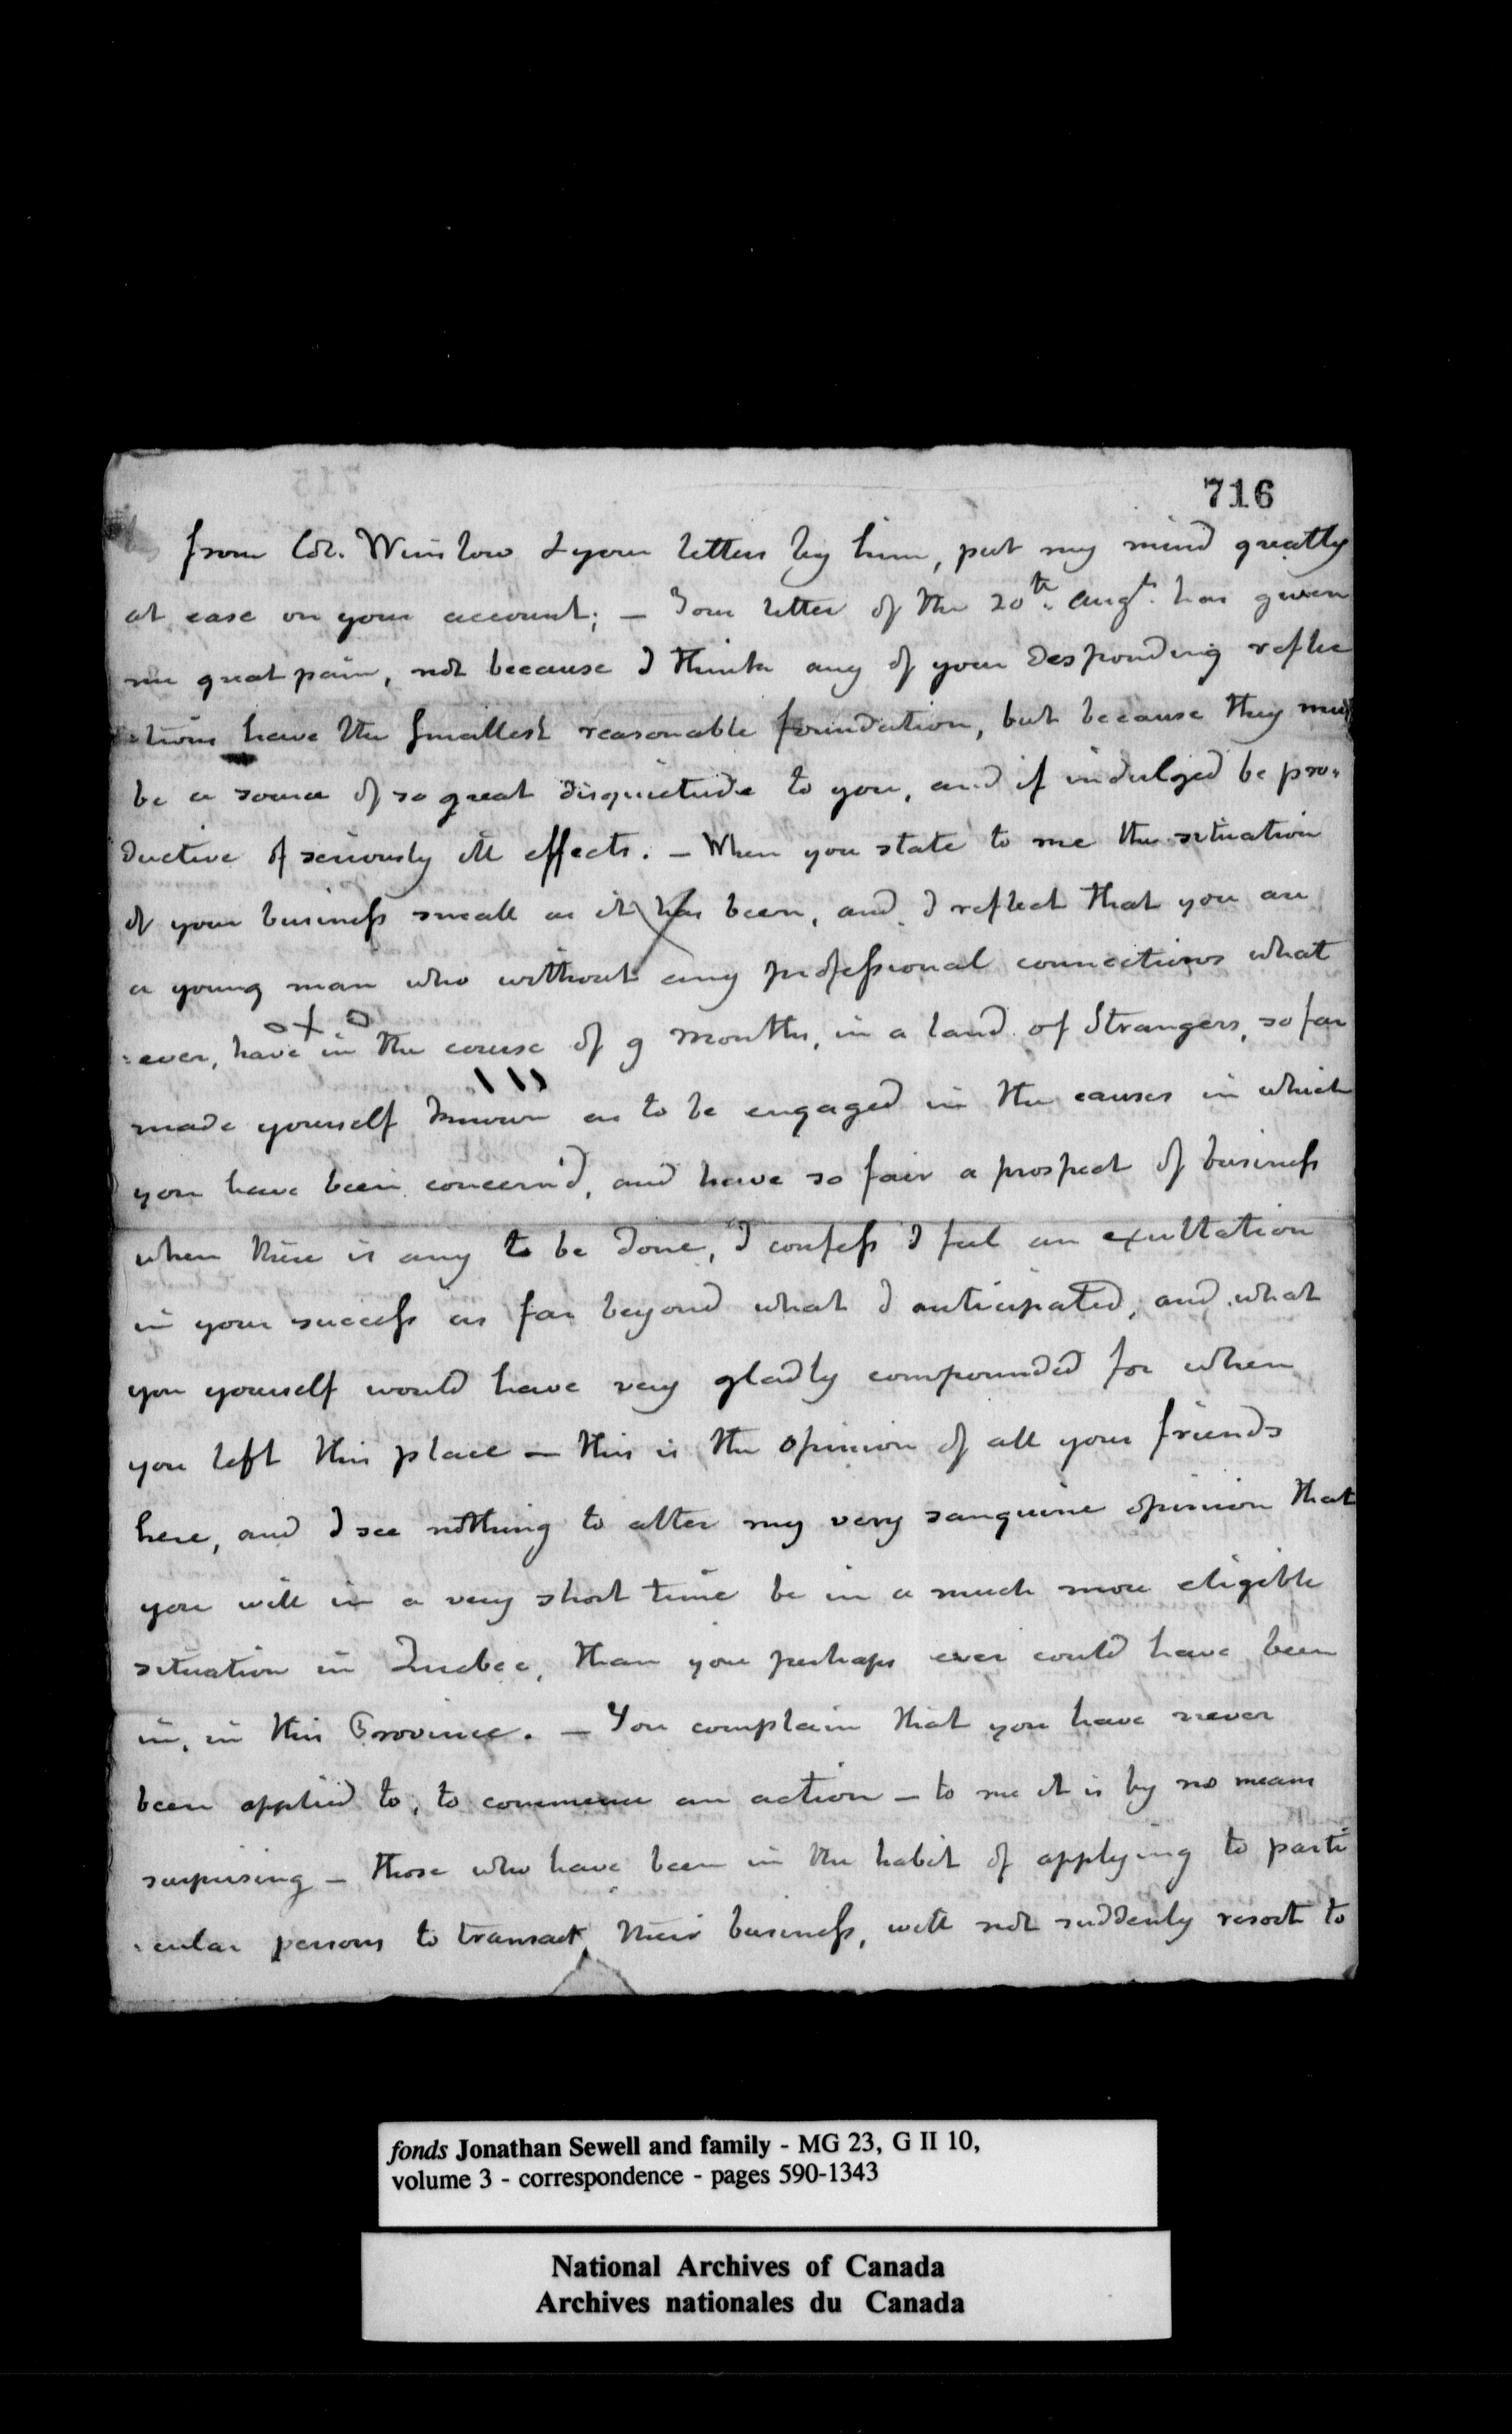 716
from Col. Winslow & your letters by him, put my mind greatly
at ease on your account; – Your letter of the 20th. Augt. has given
me great pain, not because I think any of your desponding reflec
:tions have the smallest reasonable foundation, but because they must
be a source of so great disquietude to you, and if indulged be pro:
ductive of seriously ill effects. – When you state to me the situation
of your business small as it has been, and I reflect that you are
a young man who without any professional connections what
:ever, have in the course of 9 months, in a land of Strangers, so far
made yourself known as to be engaged in the causes in which
you have been concern'd, and have so fair a prospect of business
when there is any to be done, I confess I feel an exultation
in your success as far beyond what I anticipated, and what
you yourself would have very gladly compounded for when
you left this place – this is the opinion of all your friends
here, and I see nothing to alter my very sanguine opinion that
you will in a very short time be in a much more eligible
situation in Quebec, than you perhaps ever could have been
in, in this Province. – You complain that you have never
been applied to, to commence an action – to me it is by no means
surprising – those who have been in the habit of applying to parti
:cular persons to transact their business, will not suddenly resort to
fonds Jonathan Sewell and family - MG 23, G II 10,
volume 3 - correspondence - pages 590-1343
National Archives of Canada
Archives nationales du Canada